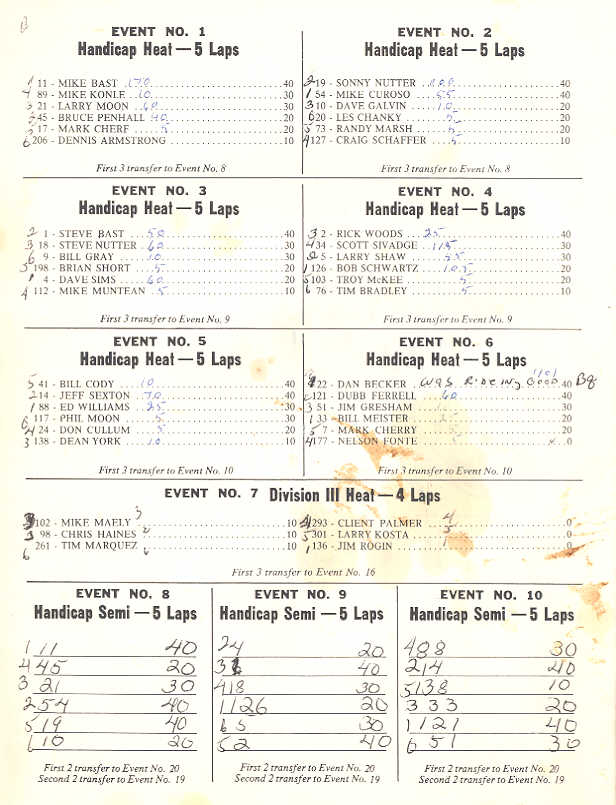 EVENT NO. 1
Handicap Heat — 5 Laps
1 11 - MIKE BAST 170 40
4 89 - MIKE KONLE 10 30
3 21 - LARRY MOON 60 30
45 - BRUCE PENHALL 40 20
5 17 - MARK CHERF 5 20
6 206 - DENNIS ARMSTRONG 10
First 3 transfer to Event No. 8
EVENT NO. 2
Handicap Heat — 5 Laps
2 19 - SONNY NUTTER 40
1 54 - MIKE CUROSO 55 40
3 10 - DAVE GALVIN 10 20
6 20 - LES CHANKY 5 20
5 73 - RANDY MARSH 5 20
4 127 - CRAIG SCHAFFER 5 10
First 3 transfer to Event No. 8
EVENT NO. 3
Handicap Heat — 5 Laps
2 1 - STEVE BAST 50 40
3 18 - STEVE NUTTER 60 30
6 9 - BILL GRAY 10 30
5 198 - BRIAN SHORT 5 20
1 4 - DAVE SIMS 60 20
4 112 - MIKE MUNTEAN 5 10
First 3 transfer to Event No. 9
EVENT NO. 4
Handicap Heat — 5 Laps
3 2 - RICK WOODS 25 40
4 34 - SCOTT SIVADGE 115 30
2 5 - LARRY SHAW 55 30
1 126 - BOB SCHWARTZ 105 20
5 103 - TROY McKEE 5 20
6 76 - TIM BRADLEY 5 10
First 3 transfer to Event No. 9
EVENT NO. 5
Handicap Heat — 5 Laps
5 41 - BILL CODY 10 40
2 14 - JEFF SEXTON 70 40
1 88 - ED WILLIAMS 25 30
6 117 - PHIL MOON 5 20
4 24 - DON CULLUM 5 20
3 138 - DEAN YORK 10 10
First 3 transfer to Event No. 10
EVENT NO. 6
Handicap Heat — 5 Laps
22 - DAN BECKER WAS RIDEING GOOD 40
121 - DUBB FERRELL 60 40
3 51 - JIM GRESHAM 30
1 33 - BILL MEISTER 20
5 7 - MARK CHERRY 5 20
4 177 - NELSON FONTE 5 x 0
First 3 transfer to Event No. 10
EVENT NO. 7 Division III Heat — 4 Laps
102 - MIKE MAELY 3 10
3 98 - CHRIS HAINES 2 10
6 261 - TIM MARQUEZ 6 10
4 293 - CLIENT PALMER 4 0
5 301 - LARRY KOSTA 5 0
1 136 - JIM ROGIN 1 0
First 3 transfer to Event No. 16
EVENT NO. 8
Handicap Semi — 5 Laps
1 11 40
4 45 20
3 21 30
2 54 40
5 19 40
6 10 20
First 2 transfer to Event No. 20
Second 2 transfer to Event No. 19
EVENT NO. 9
Handicap Semi — 5 Laps
2 4 20
3 1 40
4 18 30
1 126 20
6 5 30
5 2 40
First 2 transfer to Event No. 20
Second 2 transfer to Event No. 19
EVENT NO. 10
Handicap Semi — 5 Laps
4 88 30
2 14 40
5 138 10
3 33 20
1 121 40
6 51 30
First 2 transfer to Event No. 20
Second 2 transfer to Event No. 19